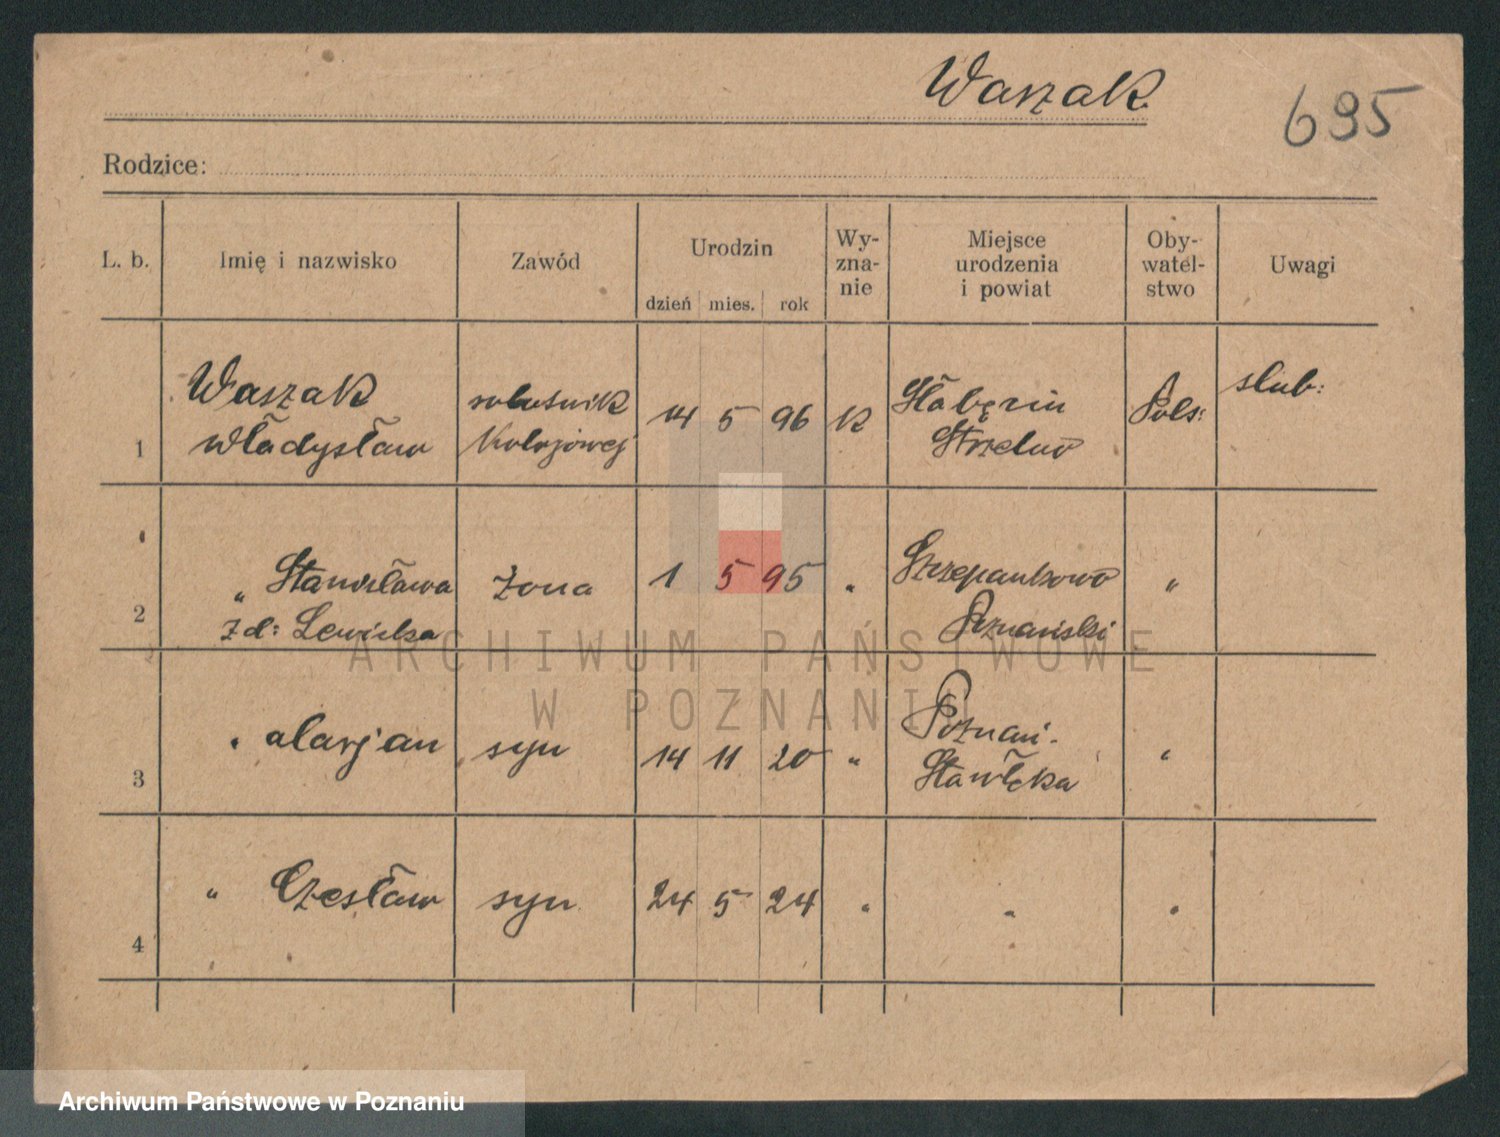 Waszak.
695
Rodzice:
L. b. Imię i nazwisko Zawód Urodzin Wy- Miejsce Oby- Uwagi
zna- urodzenia watel-
nie i powiat stwo
dzień mies. rok
Waszak robotnik 14 5 96 K Pols: slub:
1 Władysław Kolejowej Strzelno
„ Stanisława żona 1 5 95 „ Szczepankowo „
2 zd: Lewicka Poznański
„ syn 14 11 20 „ Poznań- „
3 Stawłęka
„ Czesław syn 24 5 24 „ „ „
4
ARCHIWUM PAŃSTWOWE
W POZNANIU
Archiwum Państwowe w Poznaniu